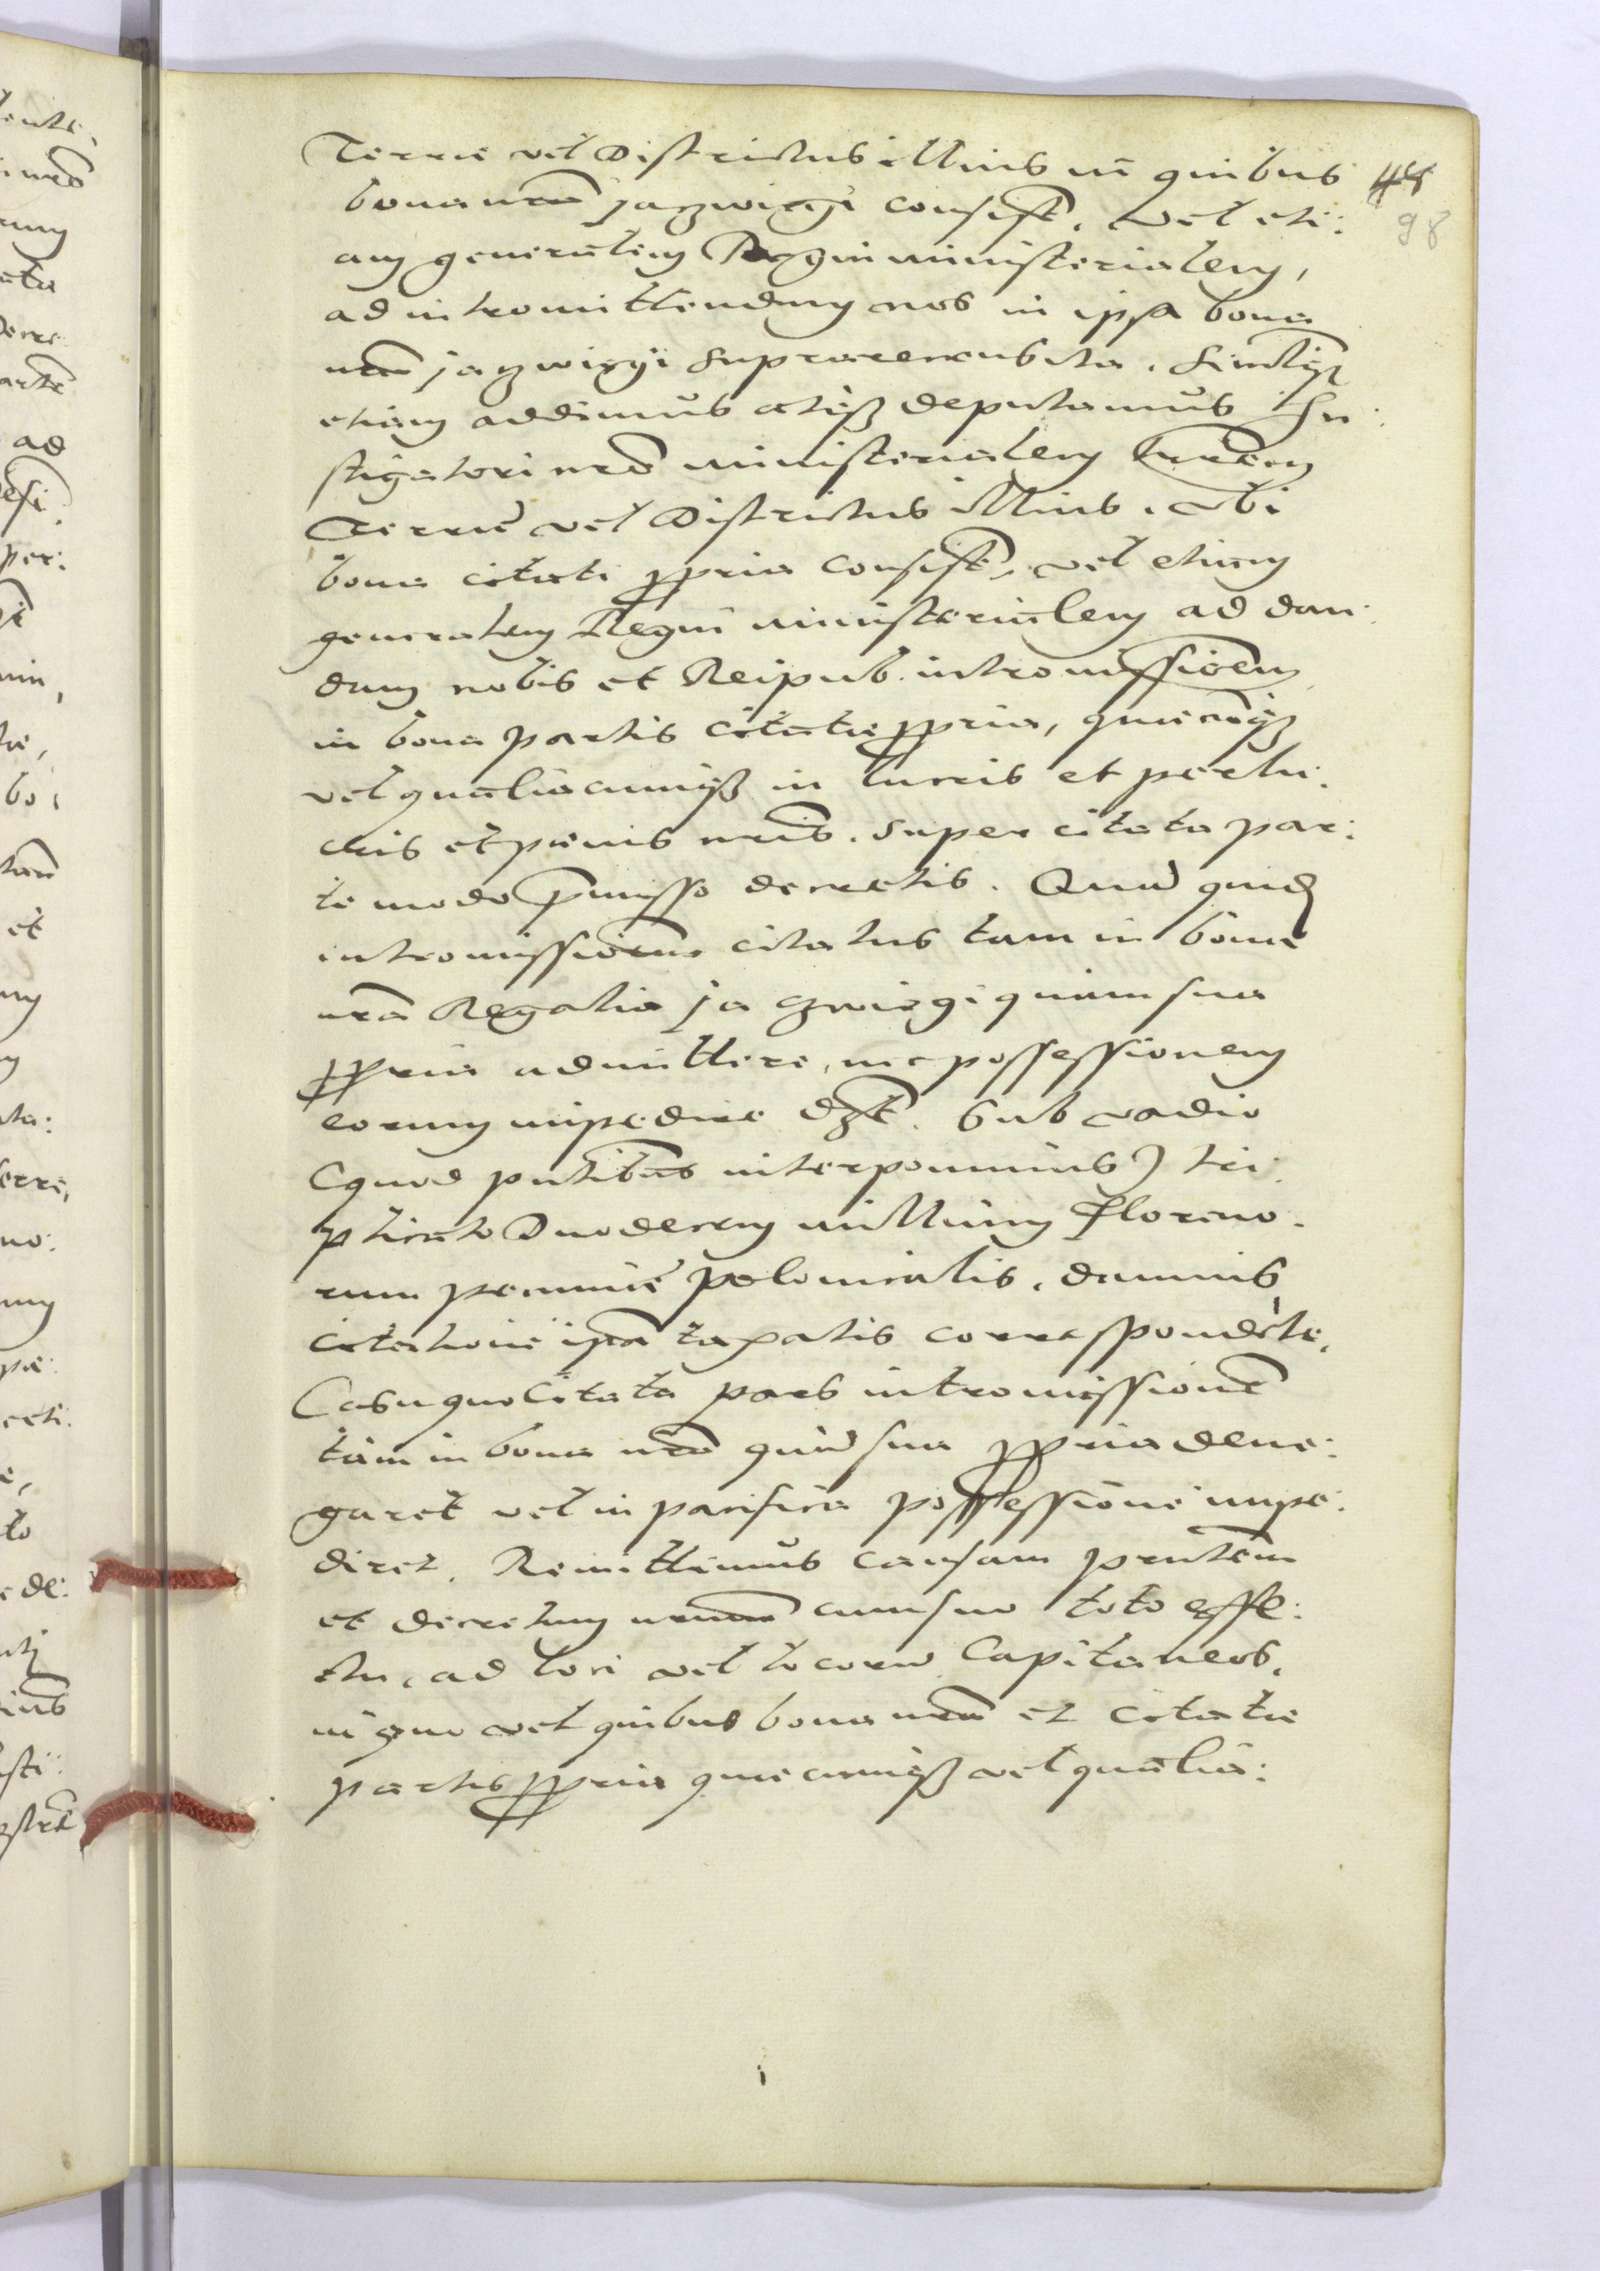 Terrae vel Districtus illius in quibus
bona nra Jaczwiegi consist. vel eti:
am generalem Regni ministerialem,
ad intromittendum nos in ipsa bona
nra Jaczwiegi suprarecensita. Similiq
etiam addimus atq deputamus In:
stigatori nro ministerialem
Terrae vel Districtus illius, Ubi
bona citati ppria consist, vel etiam
generalem Regni ministerialem ad dan:
dum nobis et Reipub. intromissionem
in bona partis citatae ppria, quaecunq
vel qualiacumq in lucris et perlu:
cris et paenis nris. super citata par:
te modo pmisso decretis. Quam quid
intromissionem citatus tam in bona
nra Regalia Jaczwiegi quam sua
ppria admittere, nec possessionem
eorum impedire dzt. Sub vadio
(quod pntibus interponimus) tri:
plicato Duodecem millium Floreno:
rum pecuniae polonicalis. damnis
citatione ipsa taxatis correspondete.
Casu quo Citata pars intromissione
tam in bona nra quam sua ppria dene:
garet vel in pacifica possessione impe:
diret. Remittimus causam pntem
et decretum nrum cum suo toto effe:
ctu, ad loci vel locoru Capitaneos,
in quo vel quibus bona nra et citatae
partis ppria quaecumq vel qualia:
98